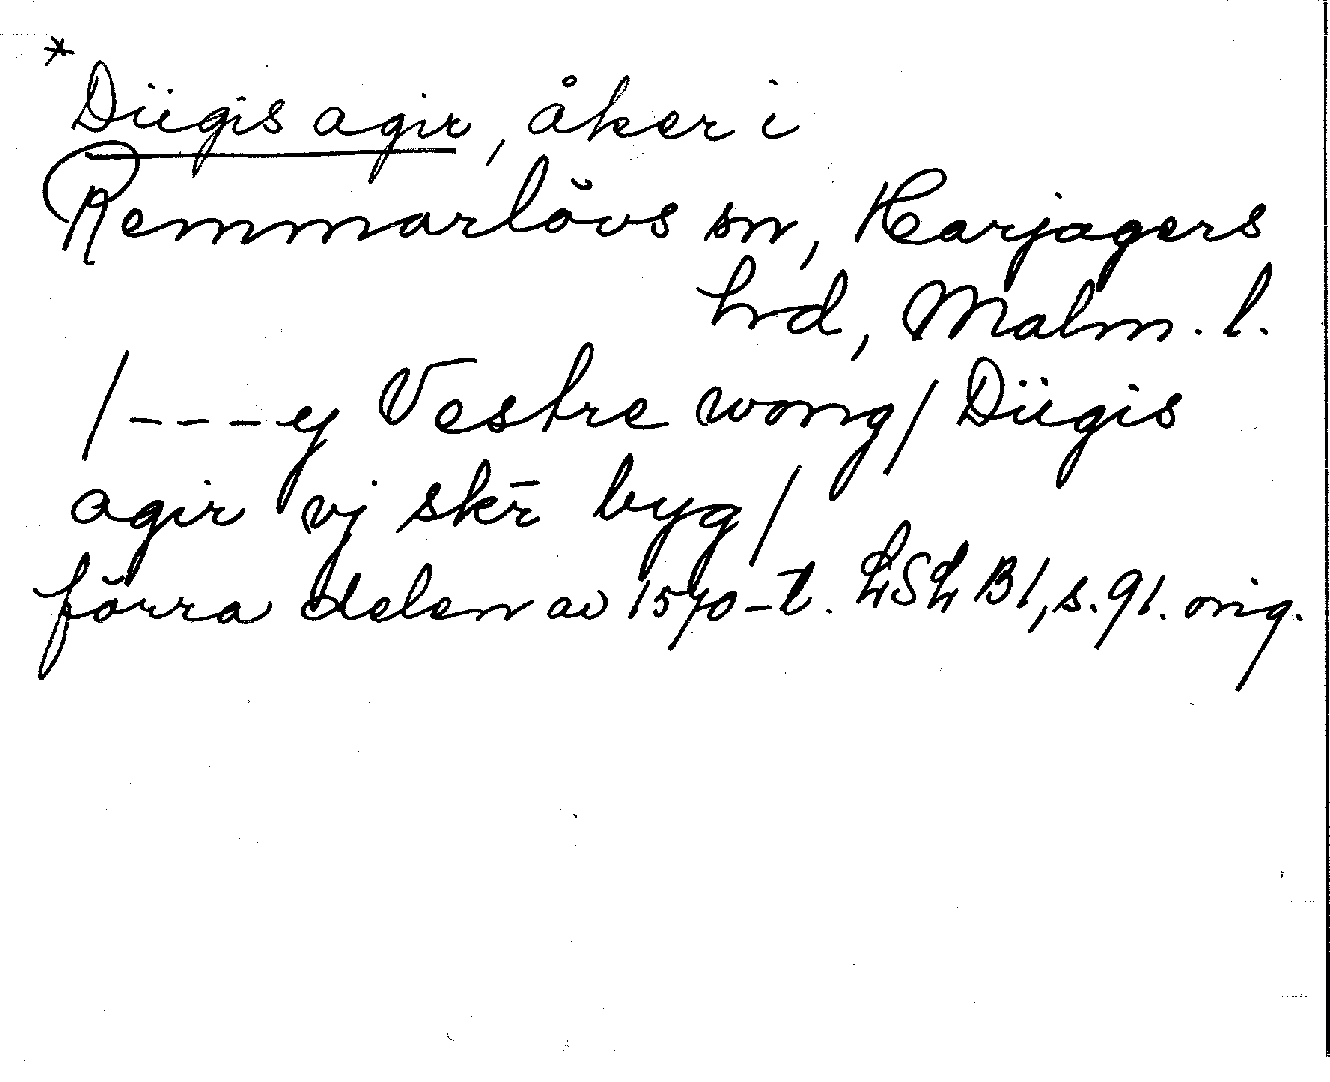 * Dügis agir, åker i
Remmarlövs sn, Harjagers
hrd, Malm. l.
/ - - - ey Vestre wong / Dügis
agir vj skr̄ byg /
förra delen av 1570-t. LSL B1, s. 91. orig.